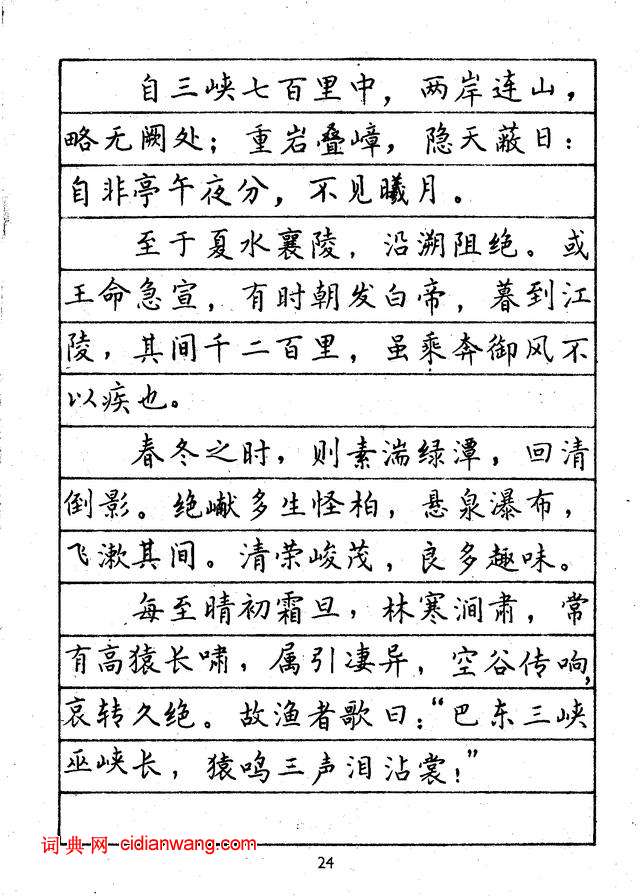 自三峡七百里中，两岸连山，
略无阙处；重岩叠嶂，隐天蔽日：
自非亭午夜分，不见曦月。
至于夏水襄陵，沿溯阻绝。或
王命急宣，有时朝发白帝，暮到江
陵，其间千二百里，虽乘奔御风不
以疾也。
春冬之时，则素湍绿潭，回清
倒影。绝巘多生怪柏，悬泉瀑布，
飞漱其间。清荣峻茂，良多趣味。
每至晴初霜旦，林寒涧肃，常
有高猿长啸，属引凄异，空谷传响，
哀转久绝。故渔者歌曰：“巴东三峡
巫峡长，猿鸣三声泪沾裳！”
词典网 cidianwang.com
24